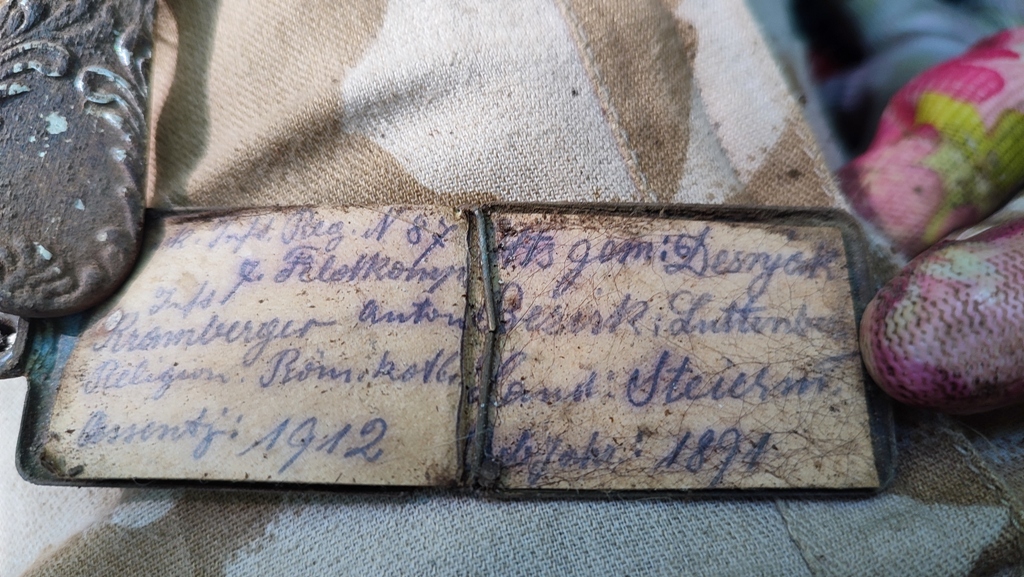 Inft Reg. N 87
7. Feldkomp
Inft
Kromberger Anton
Religion: Röm. kath.
Assentj: 1912
gem: Desnjak
Besirk: Luttenbe
Land: Steierm
Jahr: 1891